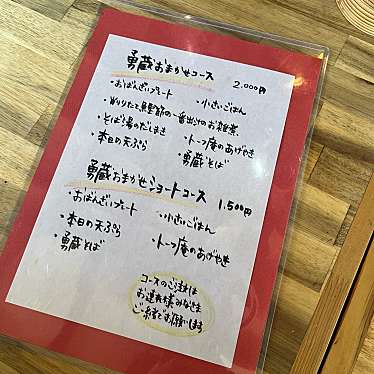 勇蔵おまかせコース 2.000円
・おばんざいプレート ・小さいごはん
・削りたて鰹節の一番出汁のお雑煮
・そば湯のだしまき ・トーフ庵のあげやき
・本日の天ぷら ・勇蔵そば
勇蔵おまかせショートコース 1.500円
・おばんざいプレート ・小さいごはん
・本日の天ぷら ・トーフ庵のあげやき
・勇蔵そば
コースのご注文は
お連れ様みなさま
ご一緒でお願いします